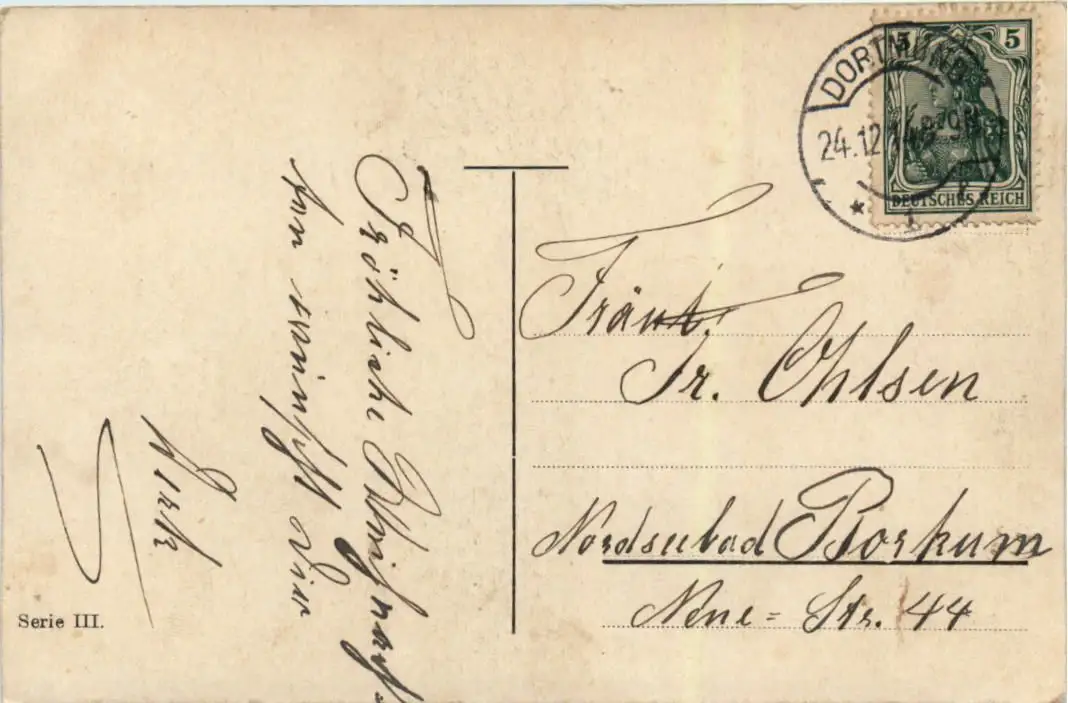 Fröhliche Weihnach-
ten wünscht Dier
5 5
DORTMUND
24.12.14
DEUTSCHES REICH
Fräul.
Fr. Ohlsen
Nordseebad Borkum
Neue-Str. 44
Serie III.